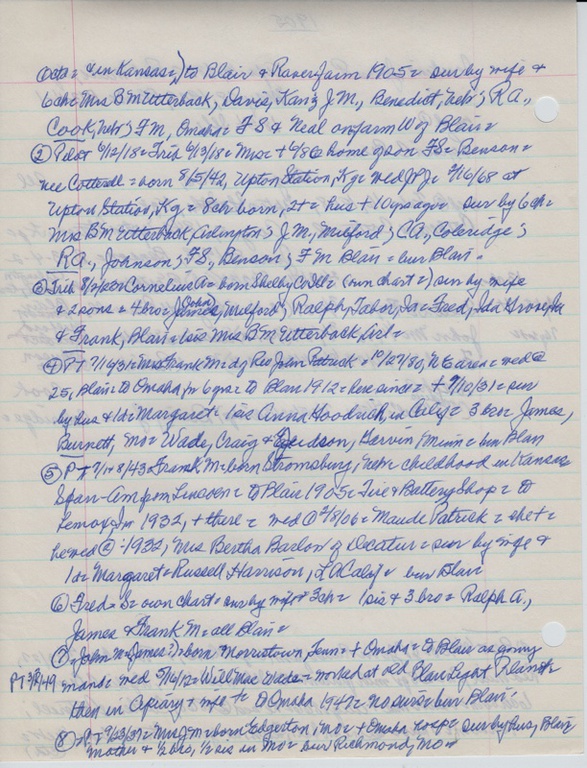 Octs = & in Kansas =) to Blair & Raver farm 1905 = sur by wife &
6 ch = Mrs B M Utterback, Davis, Kan; J.M., Benedict, Nebr; R A.,
Cook, Nebr; F M, Omaha = F S & Neal on farm W of Blair =
② Pilot 6/12/18 = Trib 6/13/18 = Misc + 6/8 @ home of son F S = Benson =
nee Cottrell = born 8/5/42, Upton Station, Ky = med 9/16/68 at
Upton Station, Ky. = 8 ch born, 2 + = hus + 10 yrs ago = sur by 6 ch =
Mrs B M Utterback, Arlington; J.M., Milford; C A., Coleridge;
R A., Johnson; F S, Benson; F M Blair = bur Blair =
③ Trib Cornelius A = born Shelby Co Ill = (own chart =) sur by wife
& 2 sons = 4 bro = John James, Milford; Ralph, Tabor, Ia = Fred, Ida Grove, Ia
& Frank, Blair = 1 sis Mrs B M Utterback, Arl =
④ P T 7/14/31 = Mrs Frank M = d of Rev John Patrick = 10/27/80, N E area = med @
25, Blair = to Omaha for 6 yrs = to Blair 1912 = here since = + 7/10/31 = sur
by hus & 1 d = Margaret = 1 sis Anna Goodrich, in Calif = 3 bro = James,
Burnett, Mo = Wade, Craig & Judson, Garvin, Minn = bur Blair
⑤ P T Frank M = born Stromsburg, Nebr = childhood in Kansas
Span-Am from Lincoln = to Blair 1905 = Tire & Battery Shop = to
Lenox, Ia 1932, + there = med ① 2/8/06 = Maude Patrick = she + =
he med ② - 1932, Mrs Bertha Barlow of Decatur = sur by wife &
1 d = Margaret = Russell Harrison, L A Calif = bur Blair
⑥ Fred = S = own chart = sur by wife & 3 ch = 1 sis & 3 bro = Ralph A.,
James & Frank M = all Blair =
⑦ = John M (James?) = born Morristown, Tenn = + Omaha = to Blair as young
man = med 5/16/12 = Will Mae Wade = worked at old Blair Light Plant =
then in Apiary = wife + = to Omaha 1947 = no survs = bur Blair =
P T 3/31/49
⑧ P T 9/23/37 = Mrs J M = born Edgerton, Mo = + Omaha hosp = sur by hus, Blair,
mother & 2 bro, ½ sis in Mo = bur Richmond, Mo =